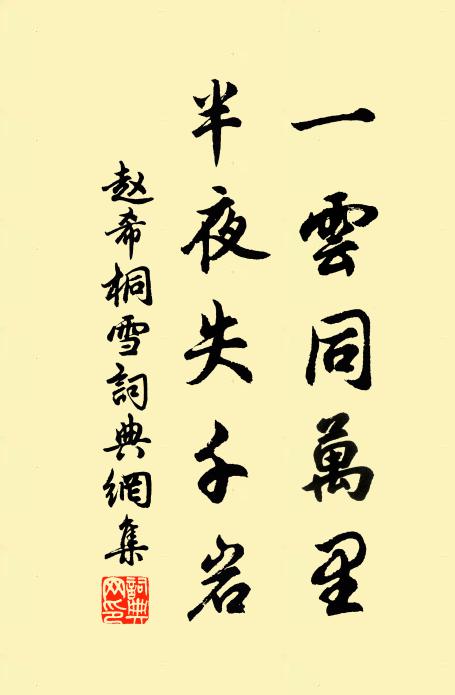 一雲同萬里
半夜失千岩
赵希桐雪詞典網集
詞典网印